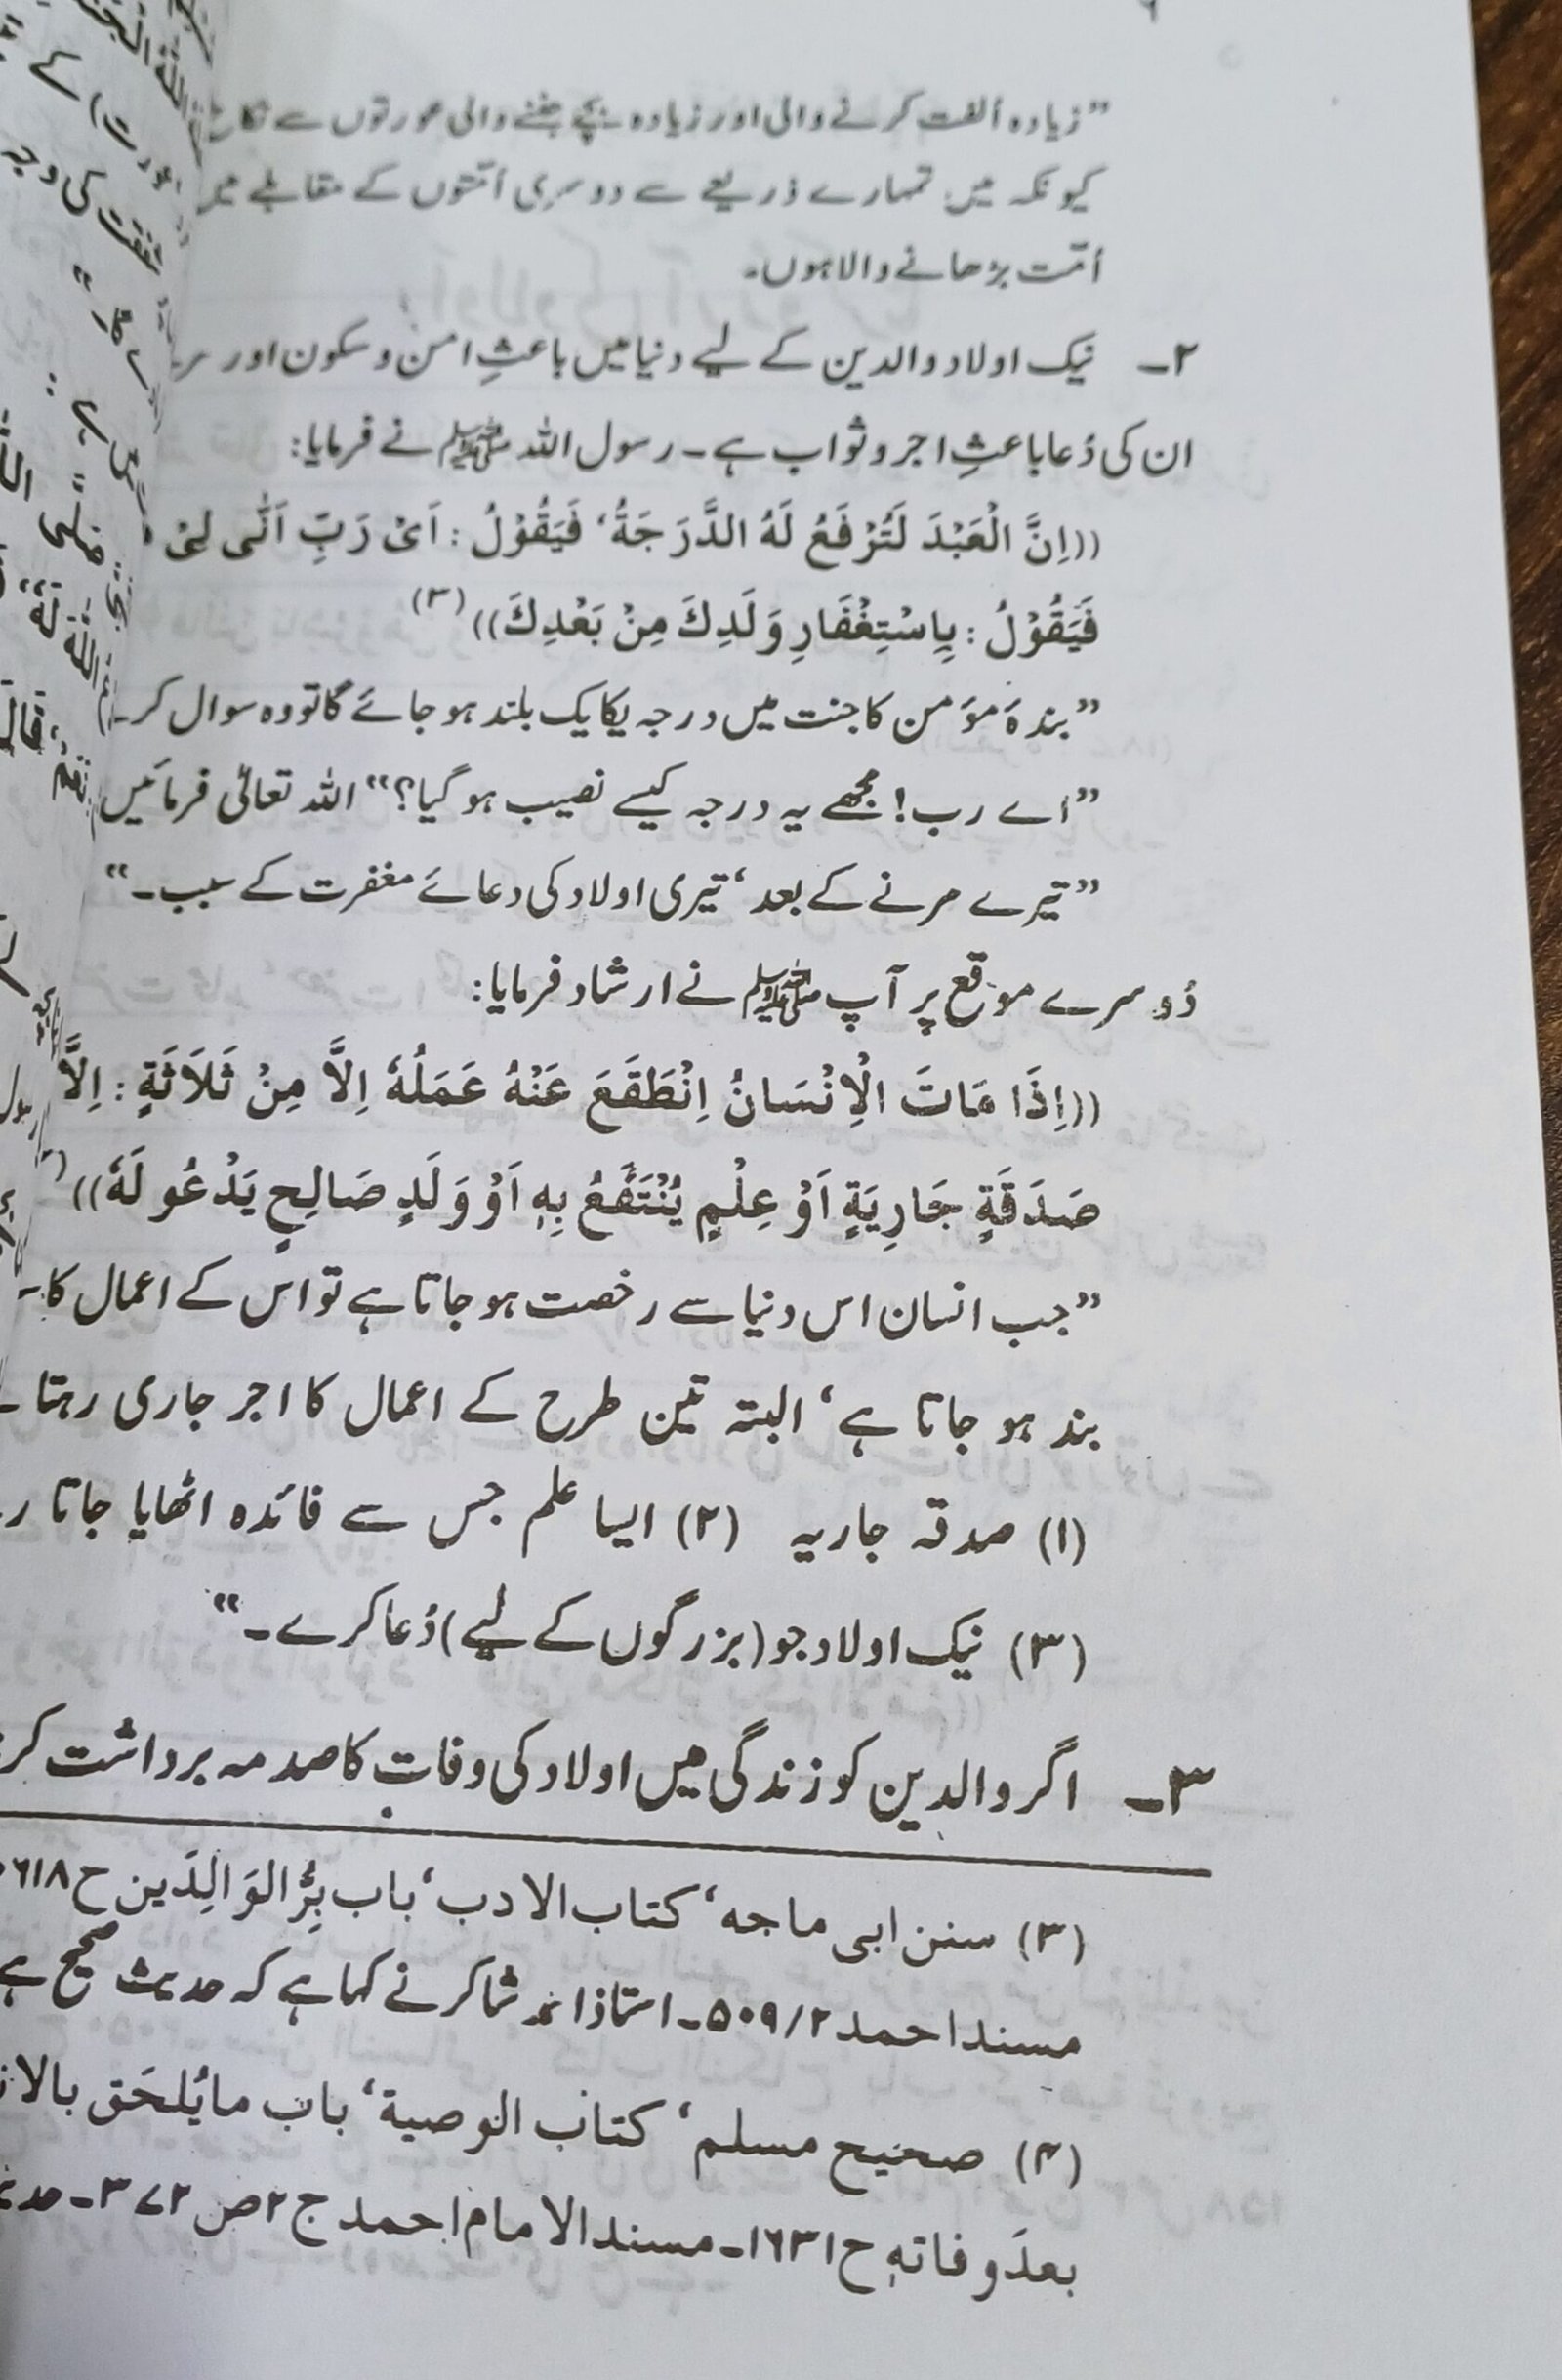 ۶
”زیادہ اُلفت کرنے والی اور زیادہ بچے جننے والی عورتوں سے نکاح
کیونکہ میں تمہارے ذریعے سے دوسری اُمتوں کے مقابلے میں
اُمّت بڑھانے والا ہوں۔
۲۔ نیک اولاد والدین کے لیے دنیا میں باعثِ امن و سکون اور
ان کی دُعا باعثِ اجر و ثواب ہے۔ رسول اللہ ﷺ نے فرمایا:
((اِنَّ الْعَبْدَ لَتُرْفَعُ لَهُ الدَّرَجَةُ‘ فَيَقُوْلُ : اَىْ رَبِّ اَنّٰى لِىْ
فَيَقُوْلُ : بِاِسْتِغْفَارِ وَلَدِكَ مِنْ بَعْدِكَ)) (۳)
”بندۂ مؤمن کا جنت میں درجہ یکایک بلند ہو جائے گا تو وہ سوال کر
”اے رب! مجھے یہ درجہ کیسے نصیب ہو گیا؟“ اللہ تعالیٰ فرمائیں
”تیرے مرنے کے بعد‘ تیری اولاد کی دعائے مغفرت کے سبب۔“
دُوسرے موقع پر آپ ﷺ نے ارشاد فرمایا:
((اِذَا مَاتَ الْاِنْسَانُ اِنْطَقَعَ عَنْهُ عَمَلُهٗ اِلاَّ مِنْ ثَلاَثَةٍ : اِلاَّ
صَدَقَةٍ جَارِيَةٍ اَوْ عِلْمٍ يُنْتَفَعُ بِهٖ اَوْ وَلَدٍ صَالِحٍ يَدْعُو لَهٗ))
”جب انسان اس دنیا سے رخصت ہو جاتا ہے تو اس کے اعمال کا
بند ہو جاتا ہے‘ البتہ تین طرح کے اعمال کا اجر جاری رہتا
(۱) صدقہ جاریہ (۲) ایسا علم جس سے فائدہ اٹھایا جاتا
(۳) نیک اولاد جو (بزرگوں کے لیے) دُعا کرے۔“
۳۔ اگر والدین کو زندگی میں اولاد کی وفات کا صدمہ برداشت کر
(۳) سنن ابی ماجہ‘ کتاب الادب‘ باب بِرُّ الوَالِدَین ح
مسند احمد ۲/۵۰۹۔ استاذ احمد شاکر نے کہا ہے کہ حدیث صحیح ہے
(۴) صحیح مسلم‘ کتاب الوصیة‘ باب ما یُلحَق
بعدَ وفاتهٖ ح ۱۶۳۱۔ مسند الامام احمد ج ۲ ص ۳۷۲۔